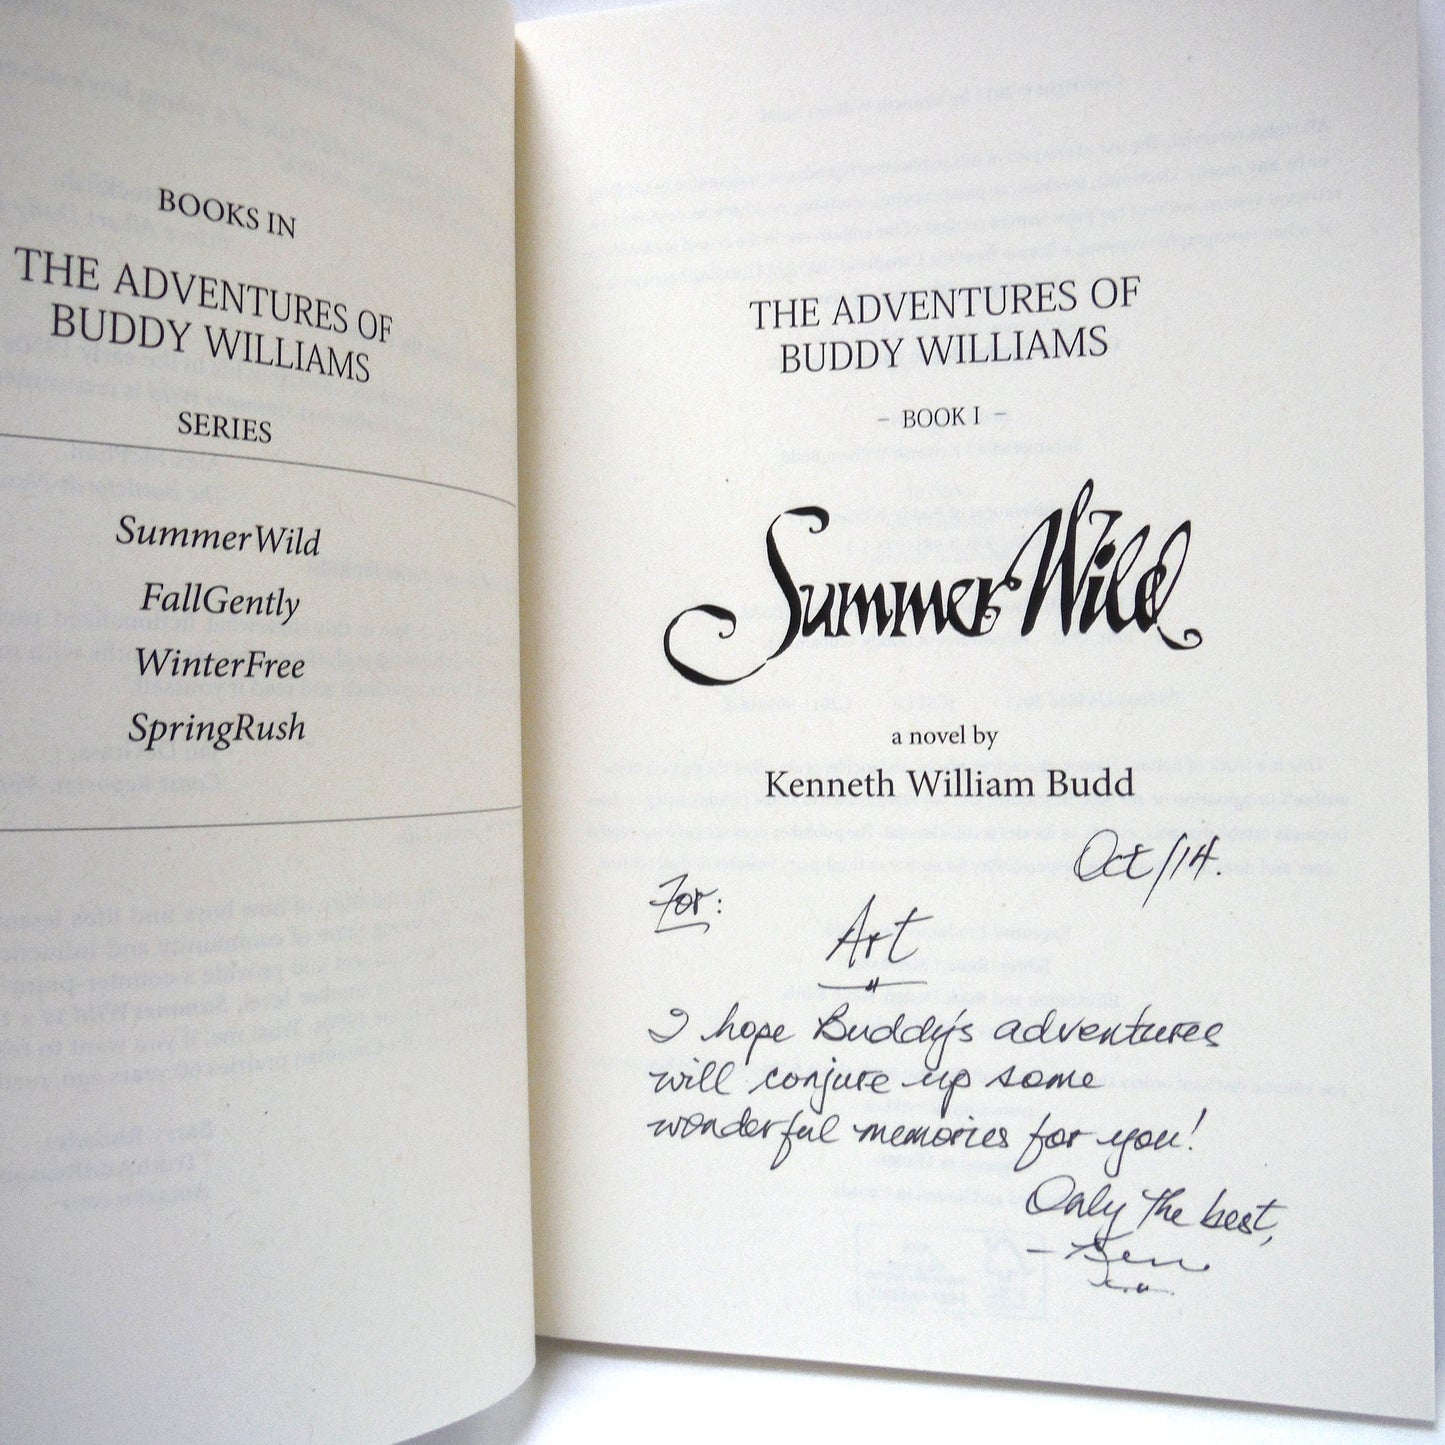 BOOKS IN
THE ADVENTURES OF
BUDDY WILLIAMS
SERIES
SummerWild
FallGently
WinterFree
SpringRush
THE ADVENTURES OF
BUDDY WILLIAMS
– BOOK I –
SummerWild
a novel by
Kenneth William Budd
Oct/14.
For:
Art
I hope Buddy's adventures
will conjure up some
wonderful memories for you!
Only the best,
– Ken